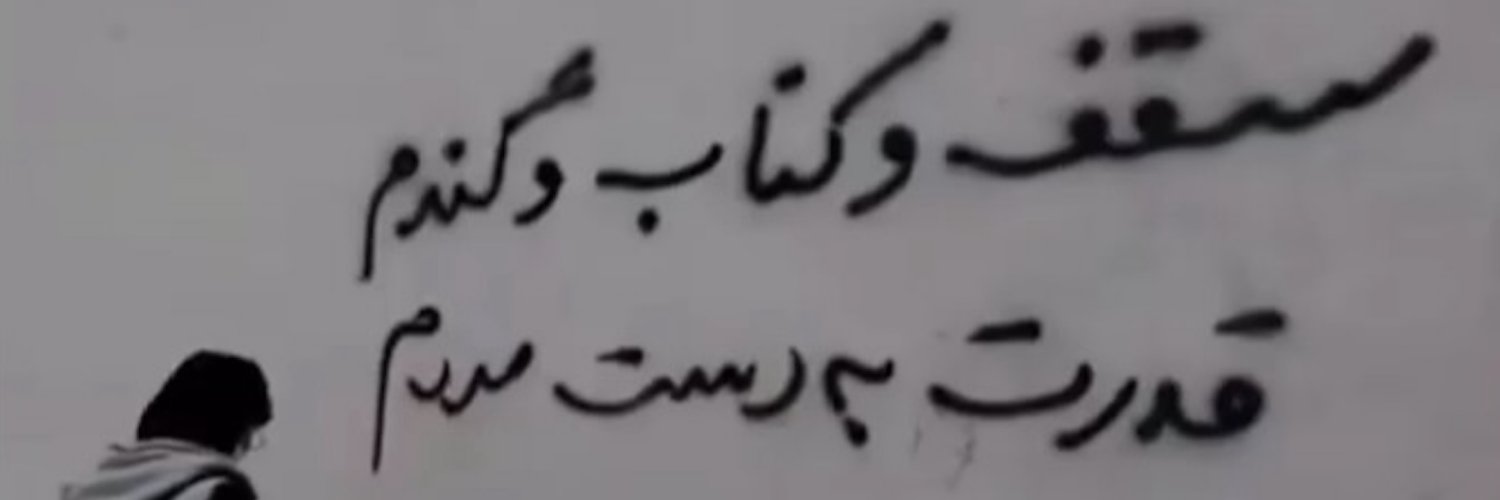 سقف و کتاب و گندم
قدرت به دست مردم